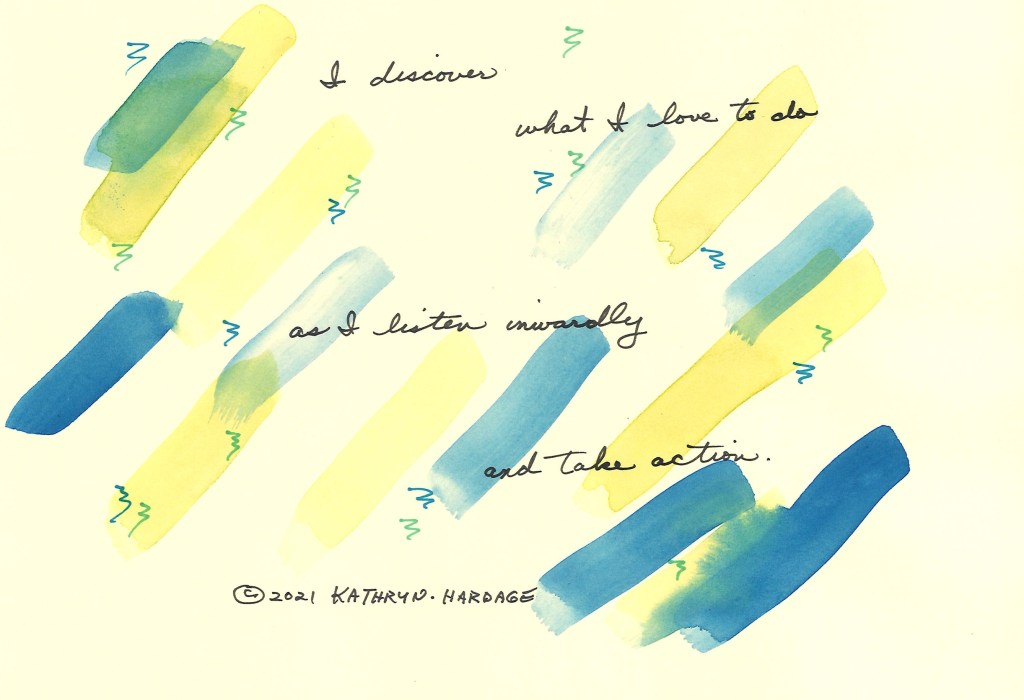 I discover
what I love to do
as I listen inwardly
and take action.
©2021 KATHRYN HARDAGE